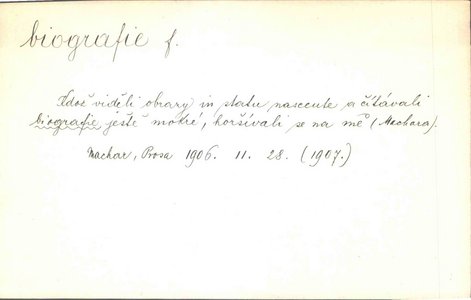 biografie f.
Kdož viděli obrazy in statu nascente a čítávali
biografie ještě mokré, horšívali se na mě (Machara).
Machar, Prosa 1906. 11. 28. (1907.)